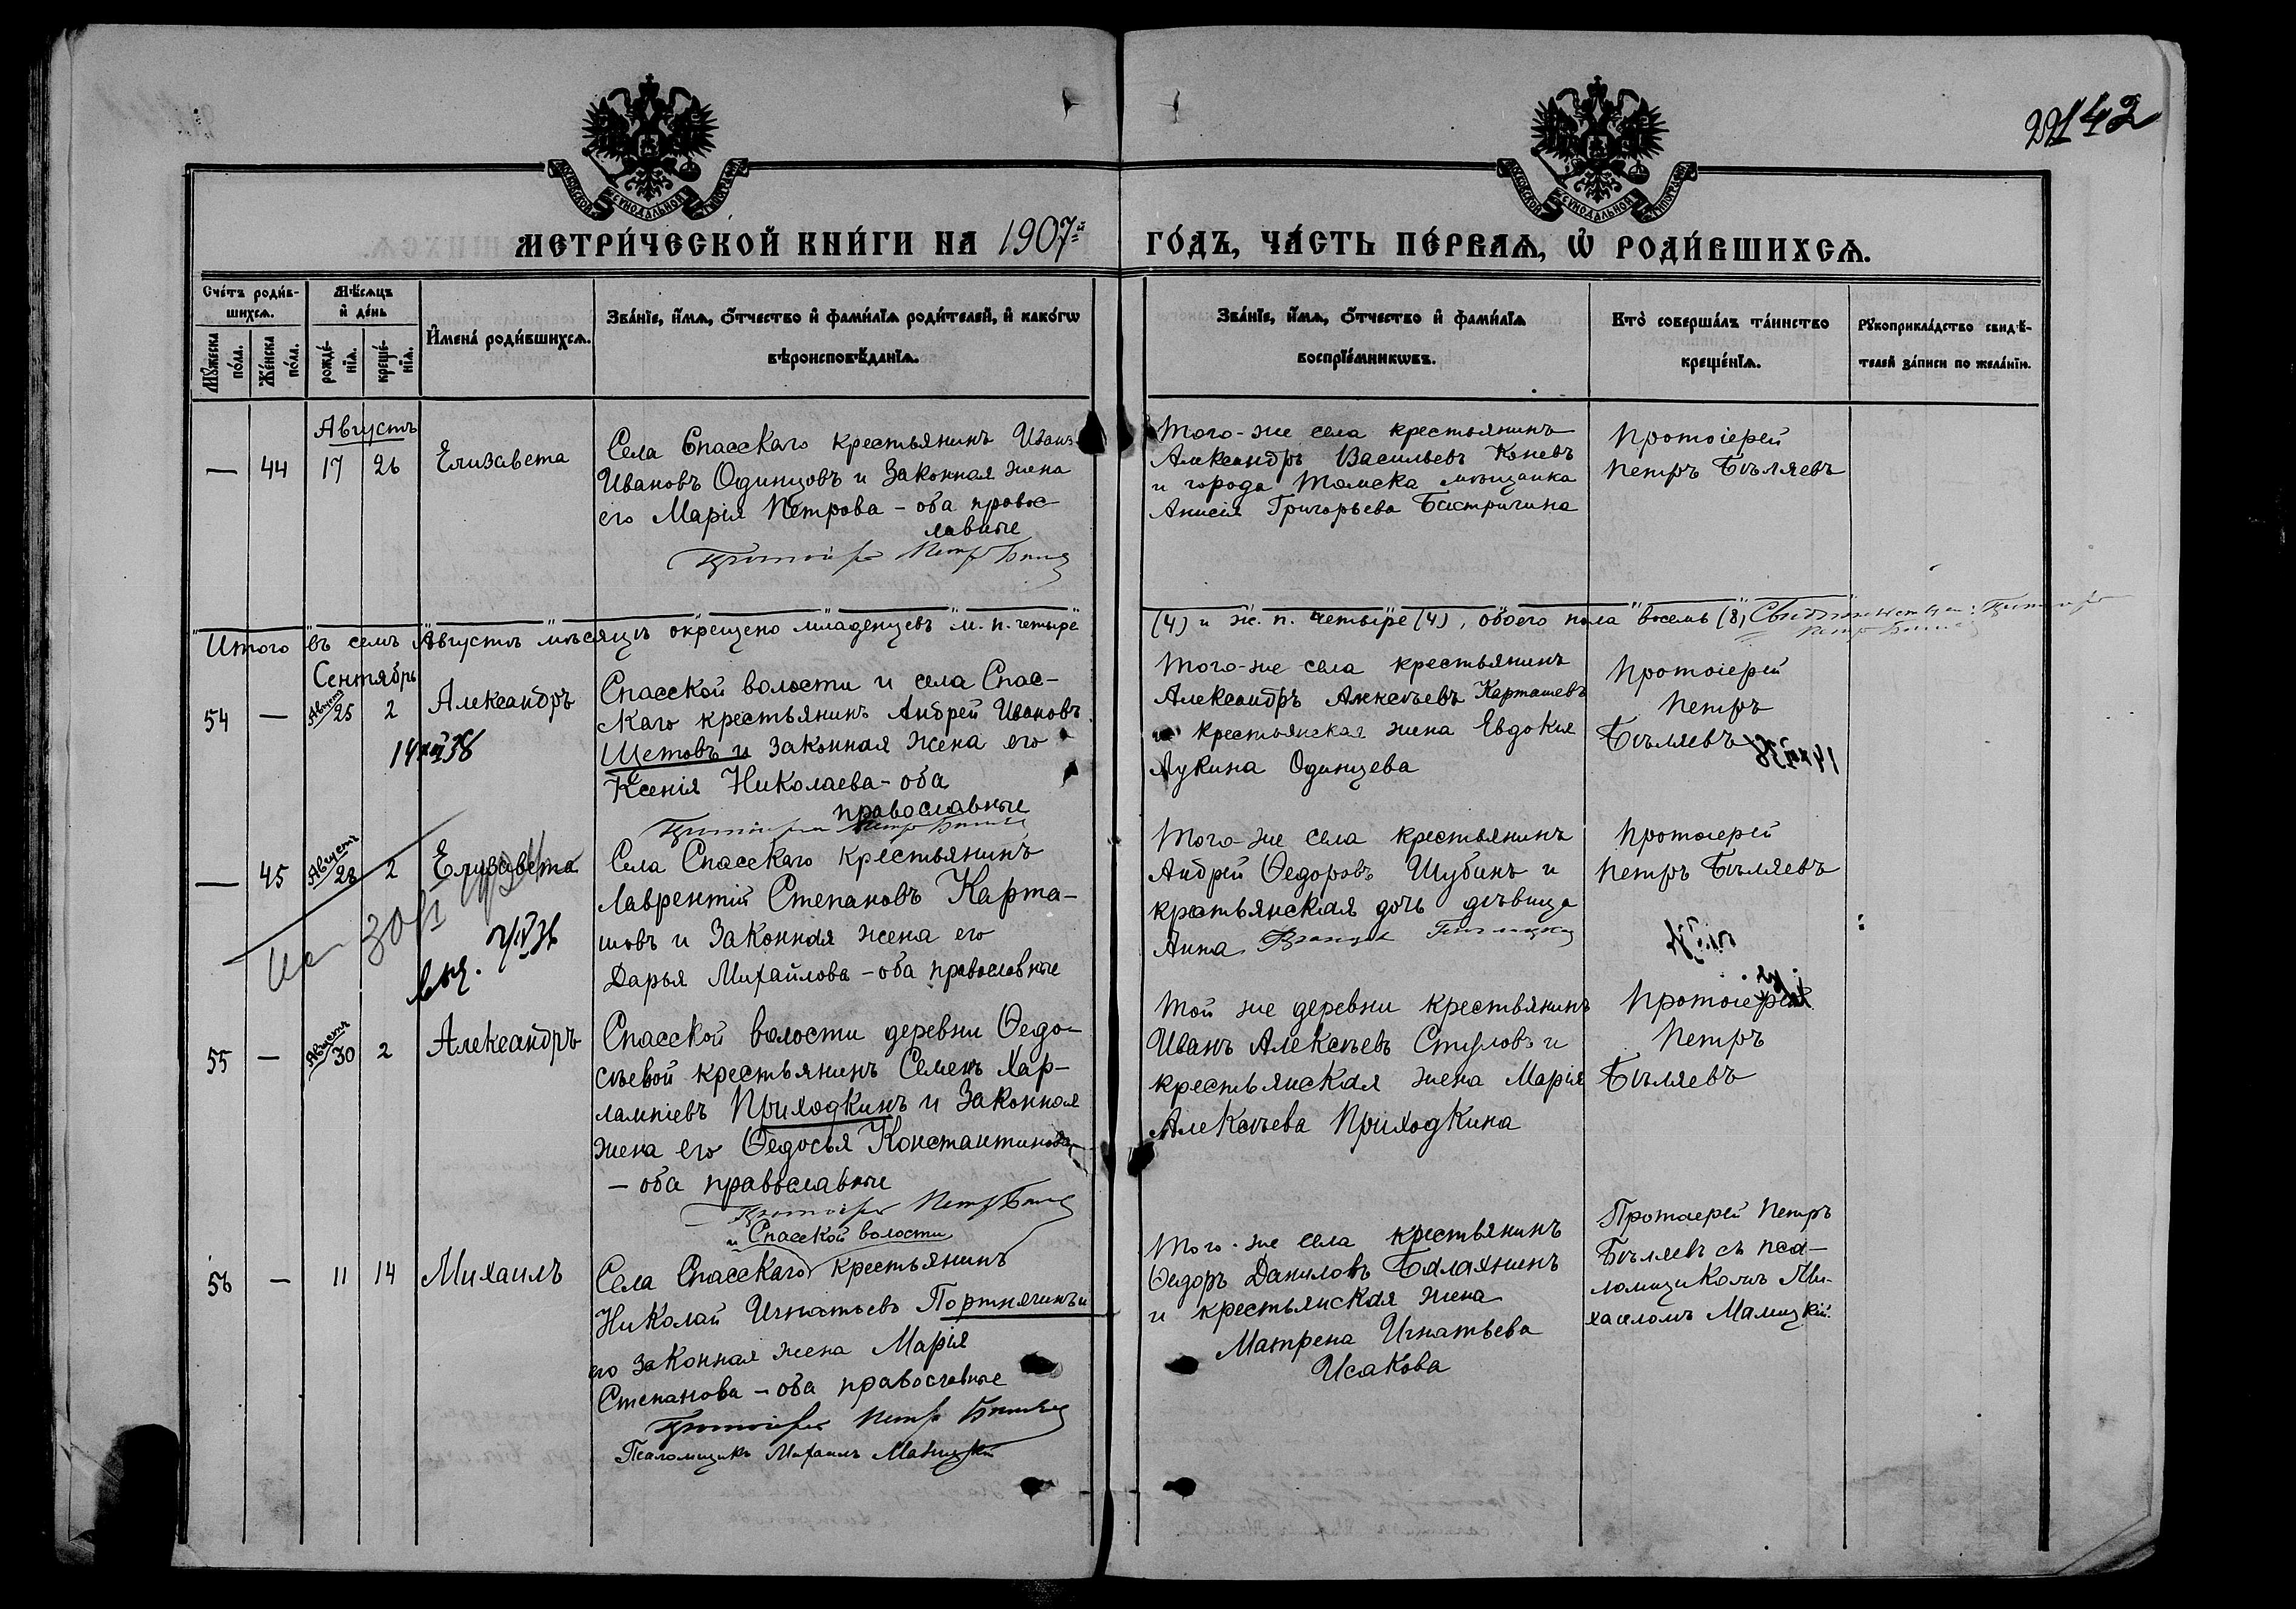 22142
МЕТРИ́ЧЕСКОЙ КНИ́ГИ НА 1907й ГО́ДЪ, ЧА́СТЬ ПЕ́РВАѦ, Ѡ҆ РОДИ́ВШИХСѦ.
Сче́тъ роди́в-
шихсѧ.
Мꙋ́жеска по́ла.
Же́нска по́ла.
Мѣ́сѧцъ
и҆ де́нь
рожде́-
нїѧ.
креще́-
нїѧ.
И҆мена̀ роди́вшихсѧ.
Зва́нїе, и҆́мѧ, ѻ҆́тчество и҆ фами́лїѧ роди́телей, и҆ како́гѡ
вѣроисповѣ́данїѧ.
Зва́нїе, и҆́мѧ, ѻ҆́тчество и҆ фами́лїѧ
воспрїе́мникѡвъ.
Кто̀ соверша́лъ та́инство
креще́нїѧ.
Рꙋкоприкла́дство свидѣ́-
телей за́писи по жела́нїю.
Августъ
— 44 17 26 Елизавета
Села Спасскаго крестьянинъ Иванъ
Ивановъ Одинцовъ и Законная жена
его Марія Петрова – оба правос-
лавные
Того-же села крестьянинъ
Александръ Васильевъ Коневъ
и города Томска мѣщанка
Анисія Григорьева Бастригина
Протоіерей
Петръ Бѣляевъ
Итого въ семъ Августѣ мѣсяцѣ окрещено младенцевъ м. п. четыре
(4) и ж. п. четыре (4), обоего пола восемь (8)
Сентябрь
54 — Августъ 25 2 Александръ
14 XII 38
Спасской волости и села Спас-
скаго крестьянинъ Андрей Ивановъ
Щетовъ и законная жена его
Ксенія Николаева – оба
православные
Того-же села крестьянинъ
Александръ Алексѣевъ Карташевъ
и крестьянская жена Евдокія
Лукина Одинцева
Протоіерей
Петръ
Бѣляевъ
— 45 Августъ 28 2 Елизавета
Села Спасскаго крестьянинъ
Лаврентій Степановъ Карта-
шовъ и Законная жена его
Дарья Михайлова – оба православные
Того-же села крестьянинъ
Андрей Ѳедоровъ Шубинъ и
крестьянская дочь дѣвица
Анна
Протоіерей
Петръ Бѣляевъ
55 — Августъ 30 2 Александръ
Спасской волости деревни Ѳедо-
сѣевой крестьянинъ Семенъ Хар-
лампіевъ Приходкинъ и Законная
жена его Ѳедосья Константинова
– оба православные
Той же деревни крестьянинъ
Иванъ Алексѣевъ Стуловъ и
крестьянская жена Марія
Алексѣева Приходкина
Протоіерей
Петръ
Бѣляевъ
56 — 11 14 Михаилъ
и Спасской волости
Села Спасскаго крестьянинъ
Николай Игнатьевъ Портнягинъ и
его законная жена Марія
Степанова – оба православные
Протоіерей Петръ Бѣляевъ
Псаломщикъ Михаилъ Малицкій
Того-же села крестьянинъ
Ѳедоръ Даниловъ Балахнинъ
и крестьянская жена
Матрена Игнатьева
Исакова
Протоіерей Петръ
Бѣляевъ съ пса-
ломщикомъ Ми-
хаиломъ Малицкій.